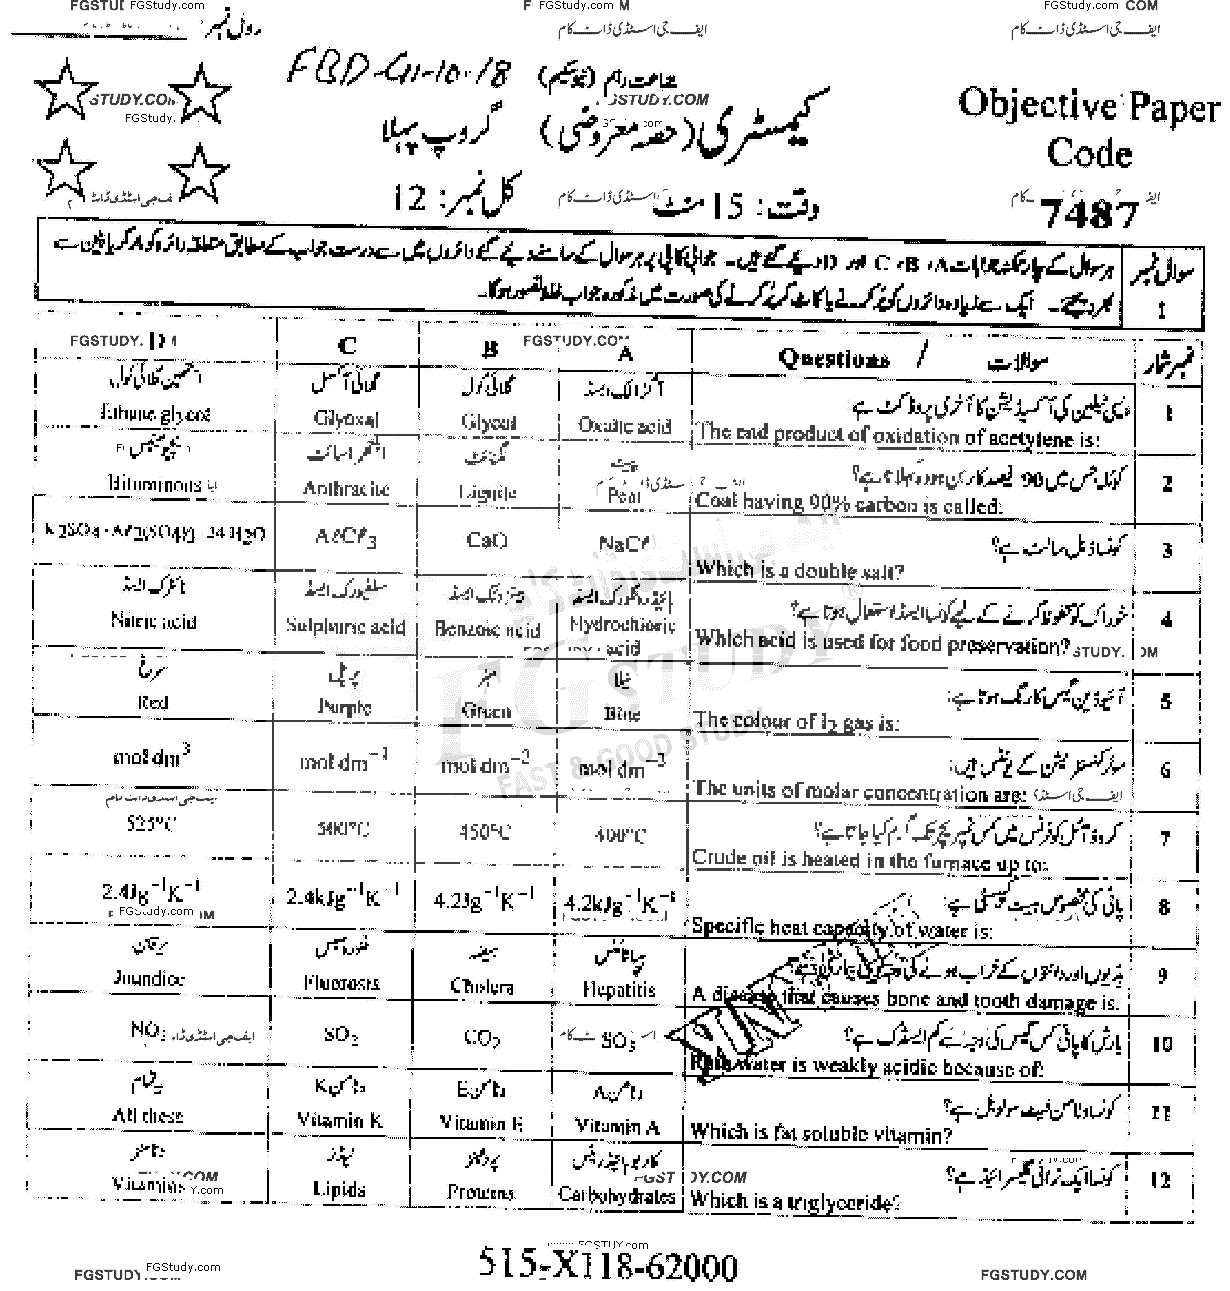 FGStudy.com
رول نمبر
FBD-G11-10-18
جماعت دہم
کیمسٹری (حصہ معروضی) گروپ پہلا
وقت : 15 منٹ کل نمبر : 12
Objective Paper
Code
7487
سوال نمبر 1
ہر سوال کے چار ممکنہ جوابات A، B، C اور D دیے گئے ہیں۔ جوابی کاپی پر ہر سوال کے سامنے دیے گئے دائروں میں سے درست جواب کے مطابق متعلقہ دائرہ کو مارکر یا پین سے
بھر دیجئے۔ ایک سے زیادہ دائروں کو پُر کرنے یا کاٹ کر پُر کرنے کی صورت میں مذکورہ جواب غلط تصور ہوگا۔
نمبر شمار سوالات / Questions A B C D
1 ایسی ٹیلین کی آکسیڈیشن کا آخری پروڈکٹ ہے
The end product of oxidation of acetylene is:
آگزالک ایسڈ گلائی کول گلائی آگسل
Oxalic acid Glycol Glyoxal Ethene glycol
2 کوئلہ جس میں 90 فیصد کاربن ہو وہ کہلاتا ہے؟
Coal having 90% carbon is called:
پیٹ
Peat Lignite Anthracite Bituminous
3 کونسا ڈبل سالٹ ہے؟
Which is a double salt?
NaCℓ CaO AℓCℓ3 K2SO4 · Aℓ2(SO4)3 · 24H2O
4 خوراک کو محفوظ کرنے کے لیے کونسا ایسڈ استعمال ہوتا ہے؟
Which acid is used for food preservation?
ہائیڈروکلورک ایسڈ بینزوئک ایسڈ سلفیورک ایسڈ نائٹرک ایسڈ
Hydrochloric acid Benzoic acid Sulphuric acid Nitric acid
5 آئیوڈین گیس کا رنگ ہوتا ہے:
The colour of I2 gas is:
نیلا سبز پرپل سرخ
Blue Green Purple Red
6 مولر کنسنٹریشن کے یونٹس ہیں:
The units of molar concentration are:
mol dm−3 mol dm−2 mol dm−1 mol dm3
7 کروڈ آئل کو فرنس میں کس ٹمپریچر تک گرم کیا جاتا ہے؟
Crude oil is heated in the furnace up to:
400°C 450°C 500°C 525°C
8 پانی کی مخصوص ہیٹ کپیسٹی ہے:
Specific heat capacity of water is:
4.2kJg−1K−1 4.2Jg−1K−1 2.4kJg−1K−1 2.4Jg−1K−1
9 ہڈیوں اور دانتوں کے خراب ہونے کی
A disease that causes bone and tooth damage is.
ہیپاٹائٹس ہیضہ فلوروسس یرقان
Hepatitis Cholera Fluorosis Jaundice
10 بارش کا پانی کس گیس کی وجہ سے کم ایسڈک ہے؟
Rain water is weakly acidic because of:
SO3 CO2 SO2 NO3
11 کونسا وٹامن فیٹ سولوبل ہے؟
Which is fat soluble vitamin?
وٹامن A وٹامن E وٹامن K یہ تمام
Vitamin A Vitamin E Vitamin K All these
12 کونسا ایک ٹرائی گلیسرائیڈ ہے؟
Which is a triglyceride?
کاربوہائیڈریٹس پروٹینز لپڈز وٹامنز
Carbohydrates Proteins Lipids Vitamins
515-X118-62000
FGSTUDY.COM
FGStudy.com
FGSTUDY.COM
FGSTUDY
FAST & GOOD STUDY